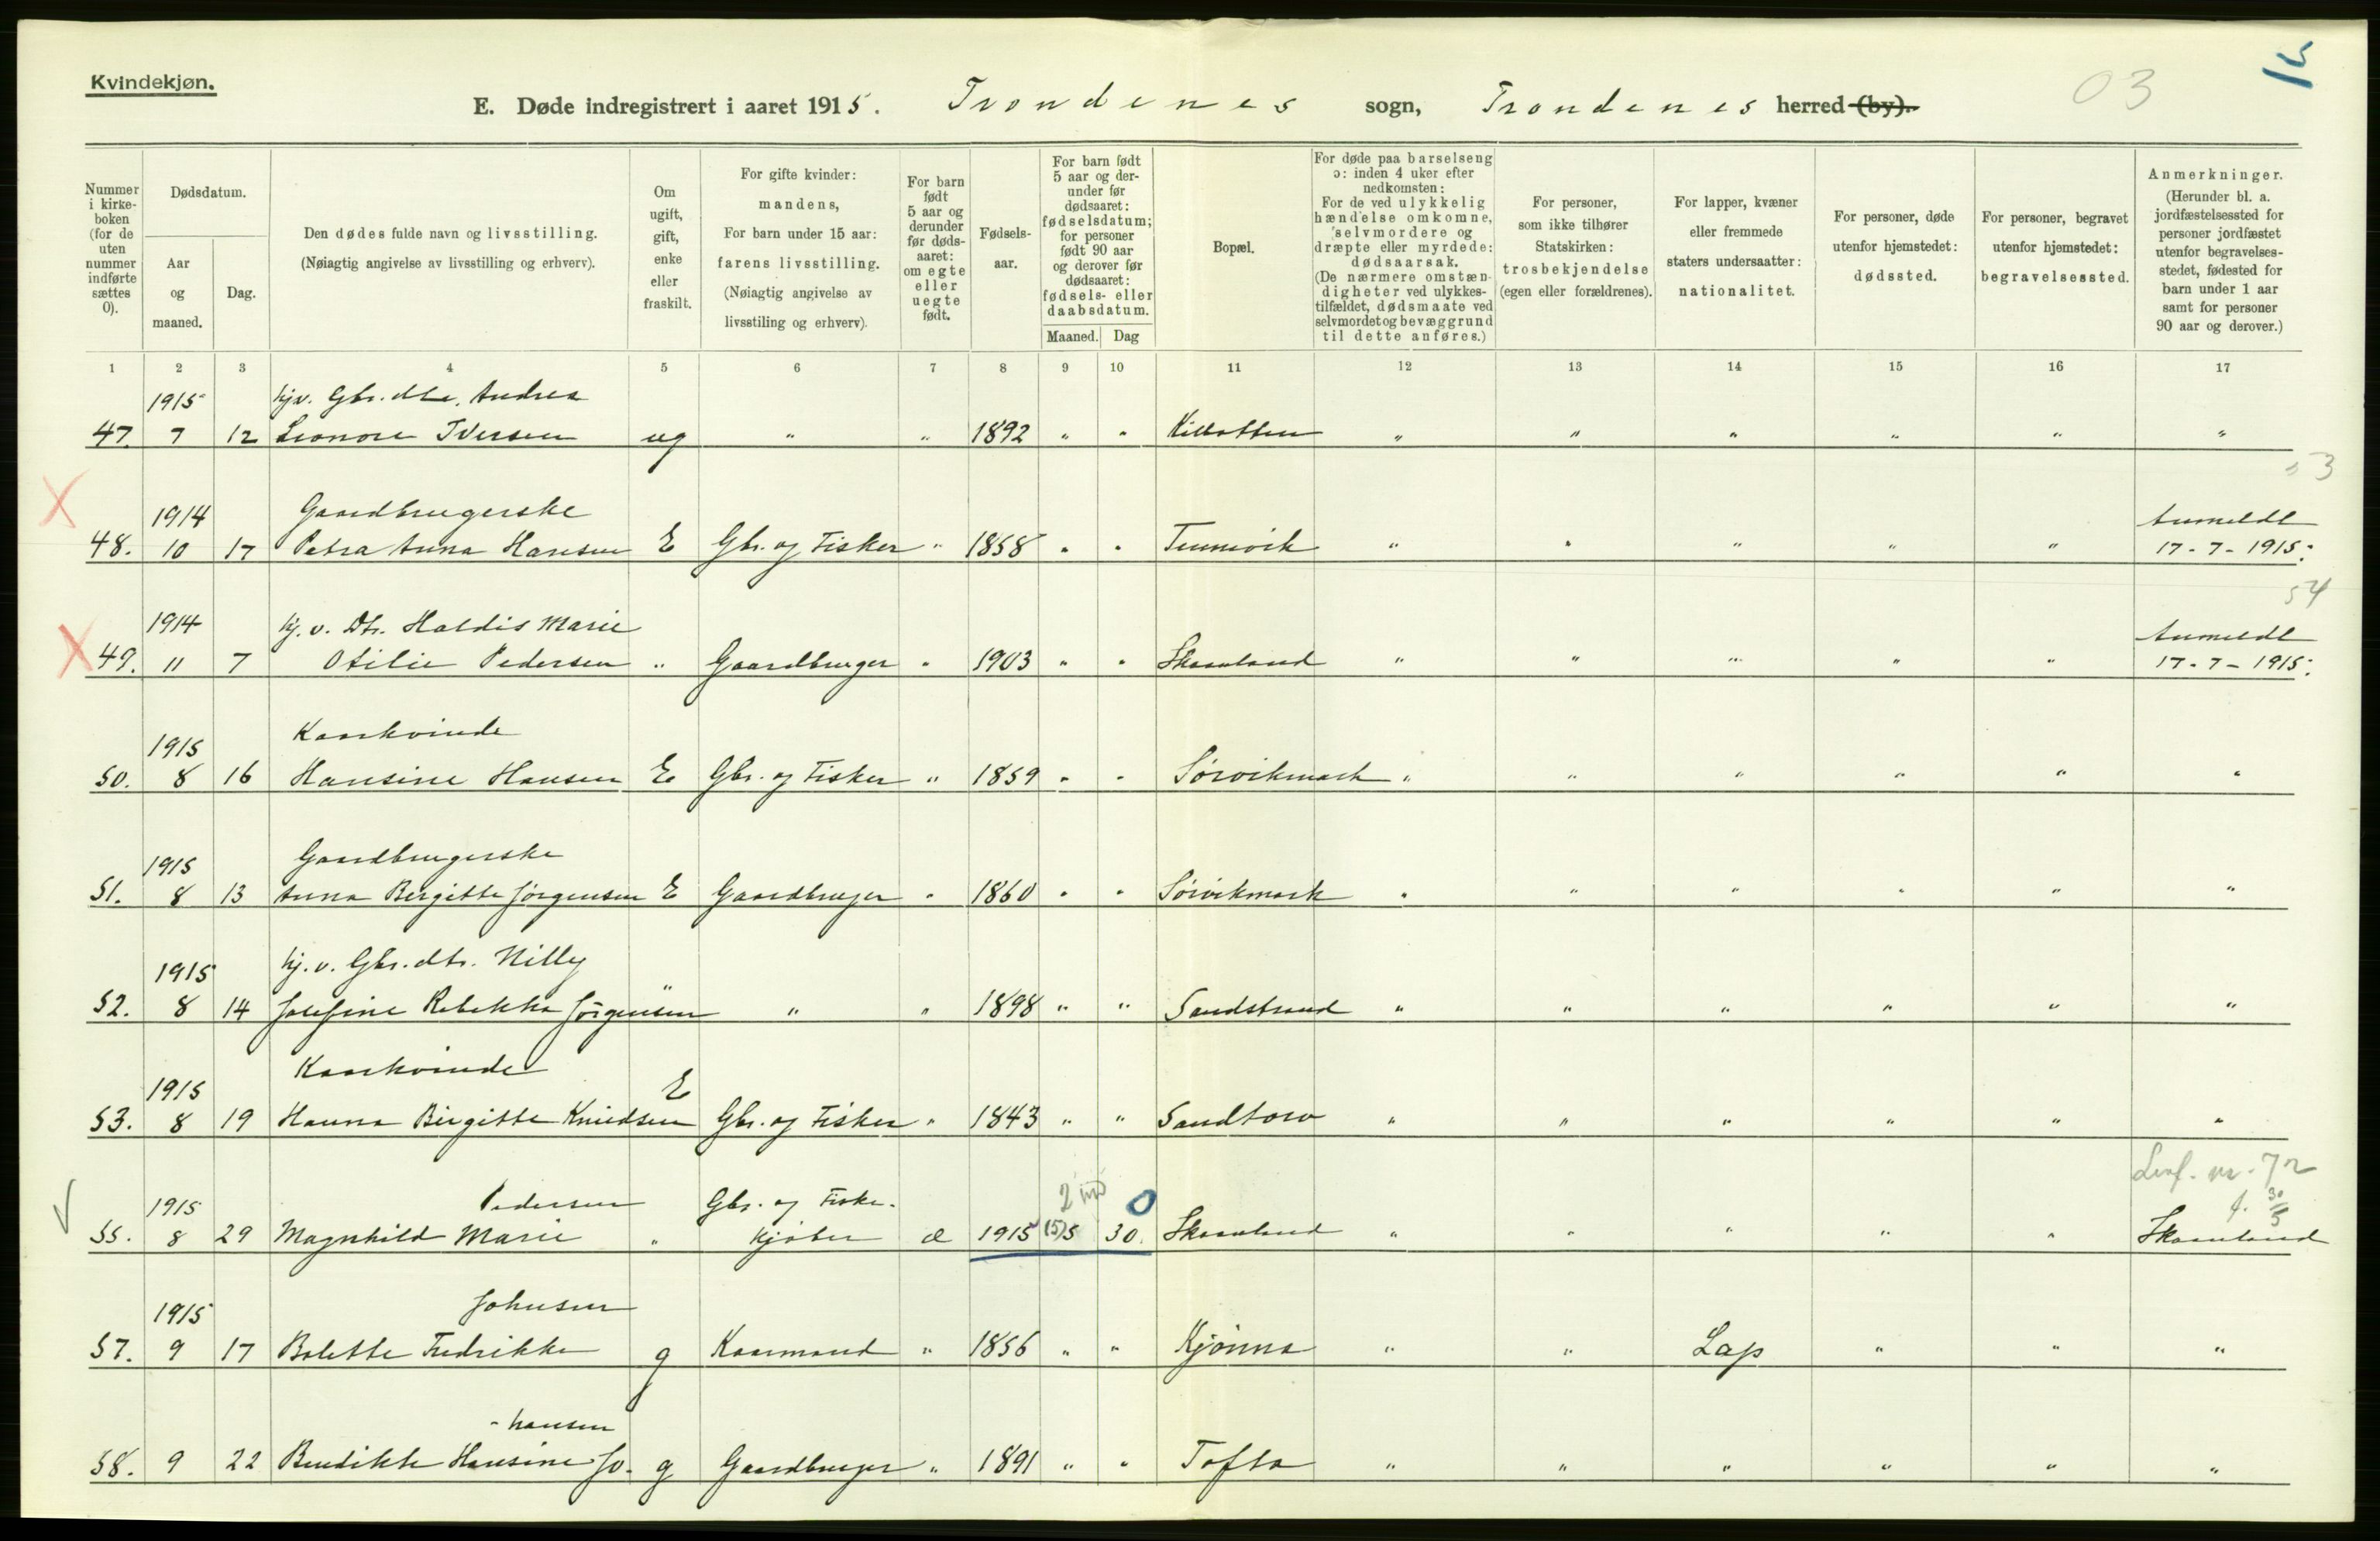 Kvindekjøn.
03
E. Døde indregistrert i aaret 1915. Trondenes sogn, Trondenes herred (by).
Nummer i kirkeboken (for de uten nummer indførte sættes 0).
Dødsdatum.
Aar og maaned.
Dag.
Den dødes fulde navn og livsstilling.
(Nøiagtig angivelse av livsstilling og erhverv).
Om ugift, gift, enke eller fraskilt.
For gifte kvinder: mandens, For barn under 15 aar: farens livsstilling. (Nøiagtig angivelse av livsstiling og erhverv).
For barn født 5 aar og derunder før dødsaaret: om egte eller uegte født.
Fødselsaar.
For barn født 5 aar og derunder før dødsaaret: fødselsdatum; for personer født 90 aar og derover før dødsaaret: fødsels- eller daabsdatum.
Maaned. Dag
Bopæl.
For døde paa barselseng ɔ: inden 4 uker efter nedkomsten: For de ved ulykkelig hændelse omkomne, selvmordere og dræpte eller myrdede: dødsaarsak. (De nærmere omstændigheter ved ulykkestilfældet, dødsmaate ved selvmordet og bevæggrund til dette anføres.)
For personer, som ikke tilhører Statskirken: trosbekjendelse (egen eller forældrenes).
For lapper, kvæner eller fremmede staters undersaatter: nationalitet.
For personer, døde utenfor hjemstedet: dødssted.
For personer, begravet utenfor hjemstedet: begravelsessted.
Anmerkninger. (Herunder bl. a. jordfæstelsessted for personer jordfæstet utenfor begravelsesstedet, fødested for barn under 1 aar samt for personer 90 aar og derover.)
1 2 3 4 5 6 7 8 9 10 11 12 13 14 15 16 17
1915 hjv. Gbr. dtr. Andrea
47. 7 12 Leonore Iversen ug " " 1892 " " Kilbotten " " " " " "
1914 Gaardbrugerske Anmeldt
48. 10 17 Petra Anna Hansen E Gbr. og Fisker " 1858 " " Tennevik " " " " " 17-7-1915.
54
1914 hj. v. Dtr. Haldis Marie Anmeldt
49. 11 7 Otilie Pedersen " Gaardbruger " 1903 " " Skaanland " " " " " 17-7-1915.
1915 Kaarkvinde
50. 8 16 Hansine Hansen E Gbr. og Fisker " 1859 " " Sørvikmark " " " " " "
1915 Gaardbrugerske
51. 8 13 Anna Bergitte Jørgensen E Gaardbruger " 1860 " " Sørvikmark " " " " " "
1915 hj. v. Gbr. dtr. Nilly
52. 8 14 Josefine Rebekka Jørgensen " " " 1898 " " Sandstrand " " " " " "
1915 Kaarkvinde
53. 8 19 Hanna Birgitte Knudsen E Gbr. og Fisker " 1843 " " Sandtorv " " " " " "
1915 Pedersen Gbr. og Fiske- 2 md 0 nr. 72 f. 30/5
55. 8 29 Magnhild Marie " kjøber e 1915 (5)5 30. Skaanland " " " " " Skaanland
1915 Johnsen
57. 9 17 Bolette Fredrikke g Kaarmand " 1856 " " Kjønna " " Lap " " "
-hansen
58. 9 22 Bendikte Hansine Jo- g Gaardbruger " 1891 " " Tofta " " " " " "